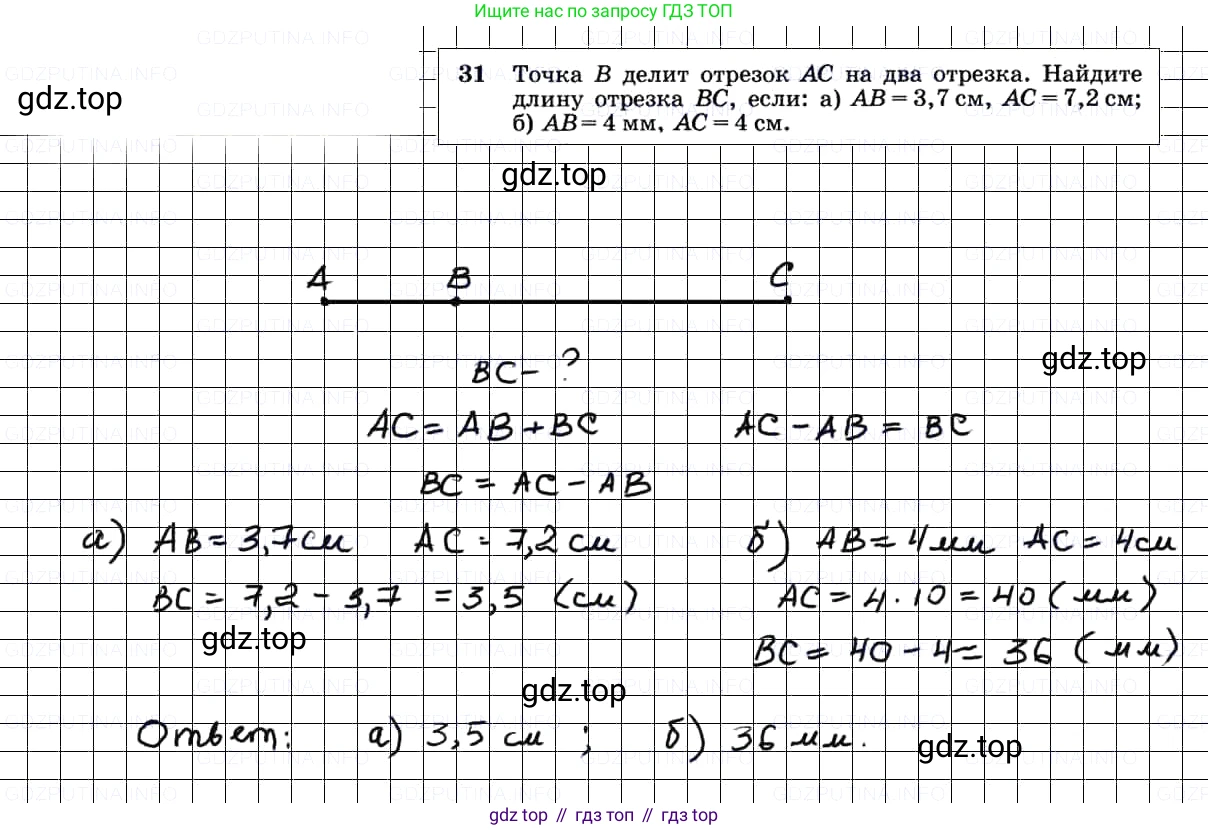 Ищите нас по запросу ГДЗ ТОП
31 Точка B делит отрезок AC на два отрезка. Найдите
длину отрезка BC, если: а) AB = 3,7 см, AC = 7,2 см;
б) AB = 4 мм, AC = 4 см.
gdz.top
gdz.top
A B C
BC - ?
gdz.top
AC = AB + BC AC - AB = BC
BC = AC - AB
а) AB = 3,7 см AC = 7,2 см б) AB = 4 мм AC = 4 см
BC = 7,2 - 3,7 = 3,5 (см) AC = 4 · 10 = 40 (мм)
gdz.top
BC = 40 - 4 = 36 (мм)
gdz.top
Ответ: а) 3,5 см ; б) 36 мм.
gdz.top
gdz top // гдз топ // гдз top
GDZPUTINA.INFO